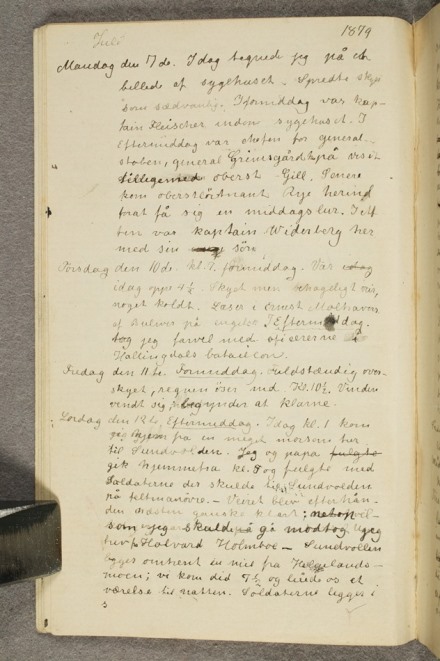 Juli 1879
Mandag den 7 de. Idag tegnede jeg på et
billede af sygehuset. Spredte skyer
som sædvanlig. Iformiddag var kap-
tain Fleischer inden sygehuset. I
Eftermiddag var chefen for general-
staben, general Grimsgård på visit
tilligemed oberst Gill. Senere
kom oberstlöitnant Rye herind
forat få sig en middagslur. I
var kaptain Widerberg her
med sin sön
Torsdag den 10 de. kl. 9. formiddag. Var
idag oppe 4½. Skyet men behageligt veir,
noget koldt. Læser i Ernest Maltravers
af Bulwer på engelsk. I Eftermiddag.
tog jeg farvel med oficererne i
Hallingdals bataillon.
Fredag den 11 te. Formiddag. Fuldstændig over-
skyet, regnen öser ned. Kl. 10½. Vinden
vendt sig, begynder at klarne.
Lördag den 12 te, Eftermiddag. Idag kl. 1 kom
jeg hjem fra en meget morsom tur
til Sundvolden. Jeg og papa fulgte
gik hjemmefra kl. 5 og fulgte med
Soldaterne der skulde til Sundvolden
på feltmanövre. - Veiret blev efterhån-
den næsten ganske klart;
som jeg skulde gå modtog jeg
brev fra Halvard Holmboe - Sundvolden
ligger omtrent en mil fra Helgelands-
moen; vi kom did 7½ og leiede os et
værelse til natten. Soldaterne ligger i